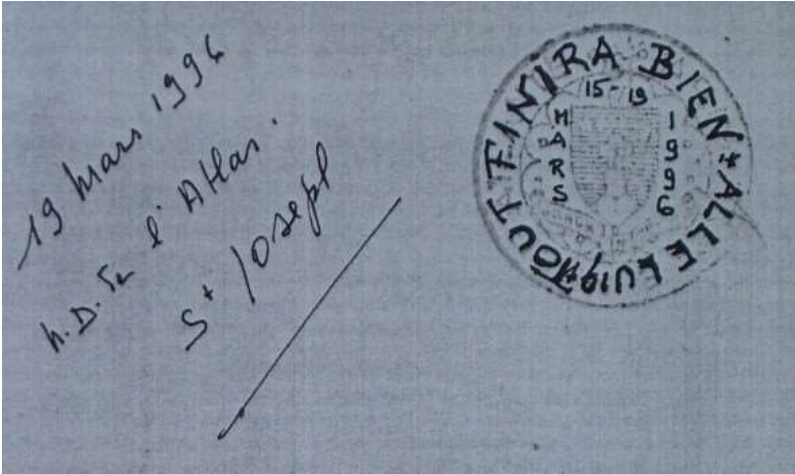 19 Mars 1996
N.D. de l'Atlas.
St Joseph
TOUT FINIRA BIEN * ALLELUIA *
15-19
MARS
1996